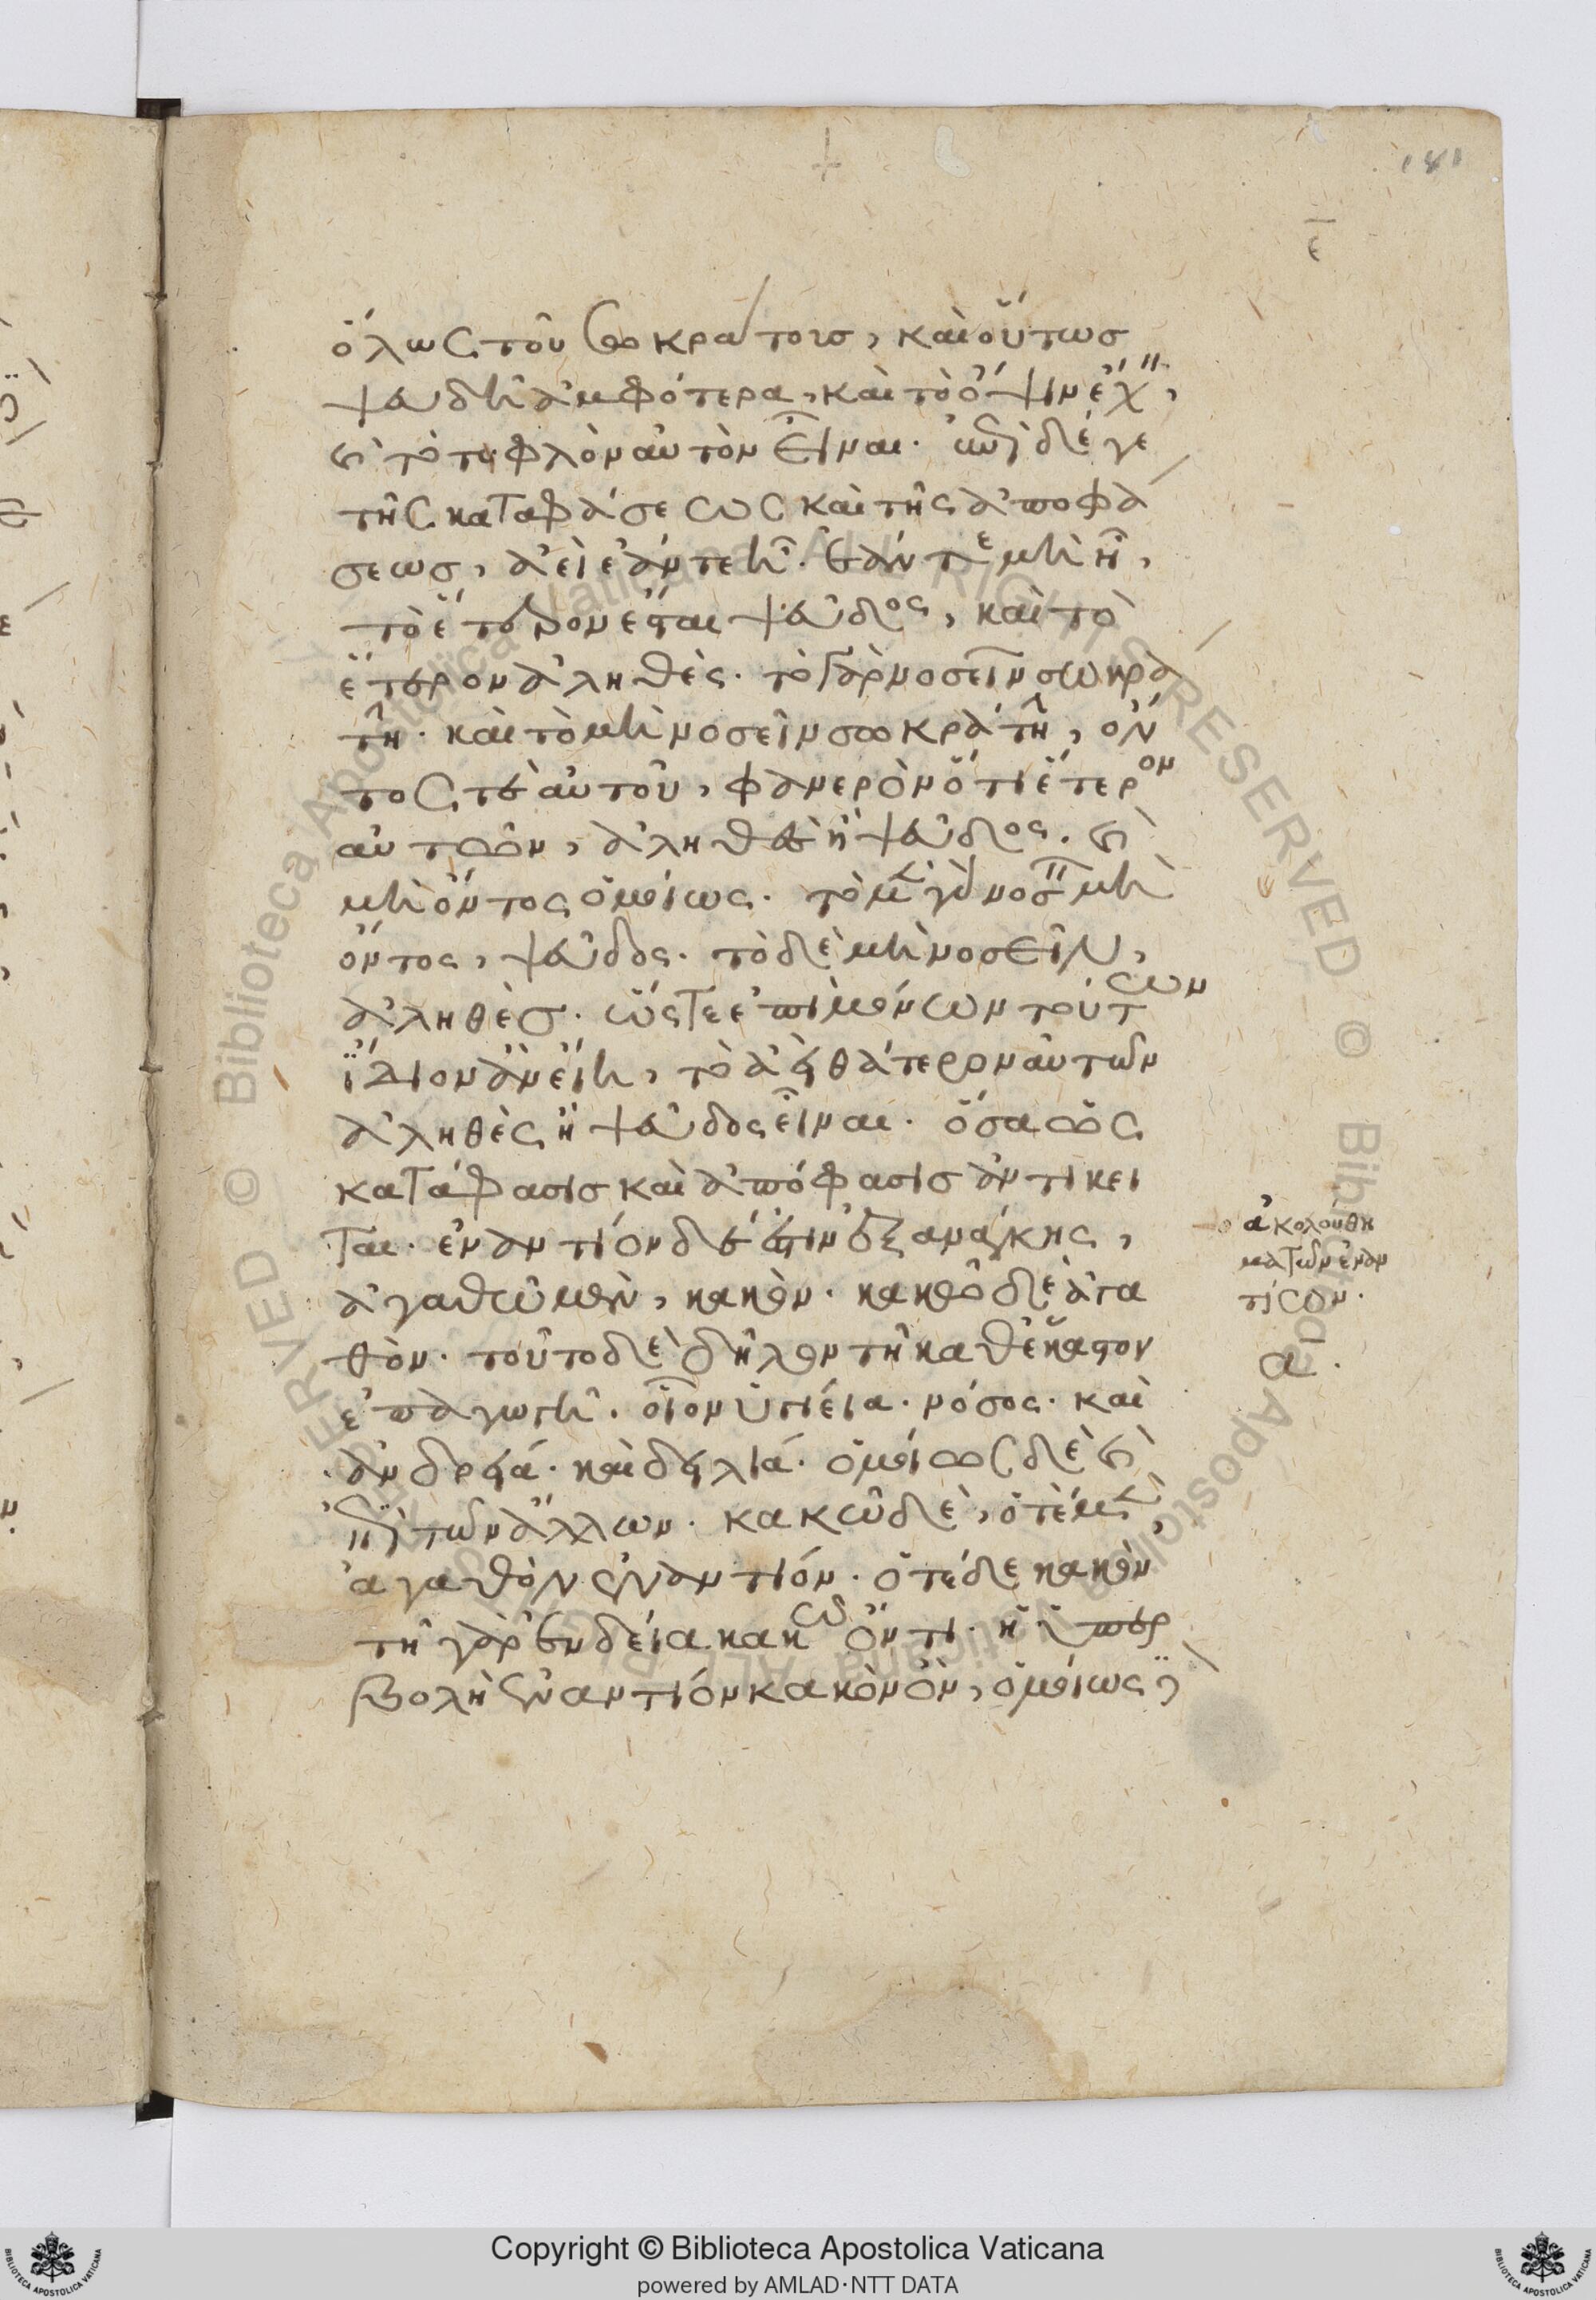 181
ε
ὅλως τοῦ σωκράτους, καὶ οὕτως
ψευδῆ ἀμφότερα, καὶ τὸ ὄψιν ἔχ,
καὶ τὸ τυφλὸν αὐτὸν εἶναι. ἐπὶ δέ γε
τῆς καταφάσεως καὶ τῆς ἀποφά
σεως, ἀεὶ ἐάν τε ᾖ. ἐάν τε μὴ ᾖ,
τὸ ἕτερον ἔσται ψεῦδος, καὶ τὸ
ἕτερον ἀληθές. τὸ γὰρ νοσεῖν σωκρά
τη. καὶ τὸ μὴ νοσεῖν σωκράτη, ὄν
τος τε αὐτοῦ, φανερὸν ὅτι ἕτερον
αὐτῶν, ἀληθὲς ἢ ψεῦδος. καὶ
μὴ ὄντος ὁμοίως. τὸ μὲν γὰρ νοσεῖν μὴ
ὄντος, ψεῦδος. τὸ δὲ μὴ νοσεῖν,
ἀληθές. ὥστε ἐπὶ μόνων τούτων
ἴδιον ἂν εἴη, τὸ ἀεὶ θάτερον αὐτῶν
ἀληθὲς ἢ ψεῦδος εἶναι. ὅσα ὡς
κατάφασις καὶ ἀπόφασις ἀντίκει
ται. ἐναντίον δέ ἐστιν ἐξ ἀνάγκης,
ἀγαθῶ μὲν, κακόν. κακῶ δὲ ἀγα
θόν. τοῦτο δὲ δῆλον τῆ καθ' ἕκαστον
ἐπαγωγῆ. οἷον ὑγιεία. νόσος. καὶ
ἀνδρεία. καὶ δειλία. ὁμοίως δὲ καὶ
ἐπὶ τῶν ἄλλων. κακῶ δὲ, ὁτὲ μὲν,
ἀγαθὸν ἐναντίον. ὁτὲ δὲ κακόν
τῆ γὰρ ἐνδεία κακῶ ὄντι. ἡ ὑπερ
βολὴ ἐναντίον κακὸν ὄν, ὁμοίως
ἀκολουθή
ματων ἐναν
τίων.
α.
Copyright © Biblioteca Apostolica Vaticana
powered by AMLAD·NTT DATA